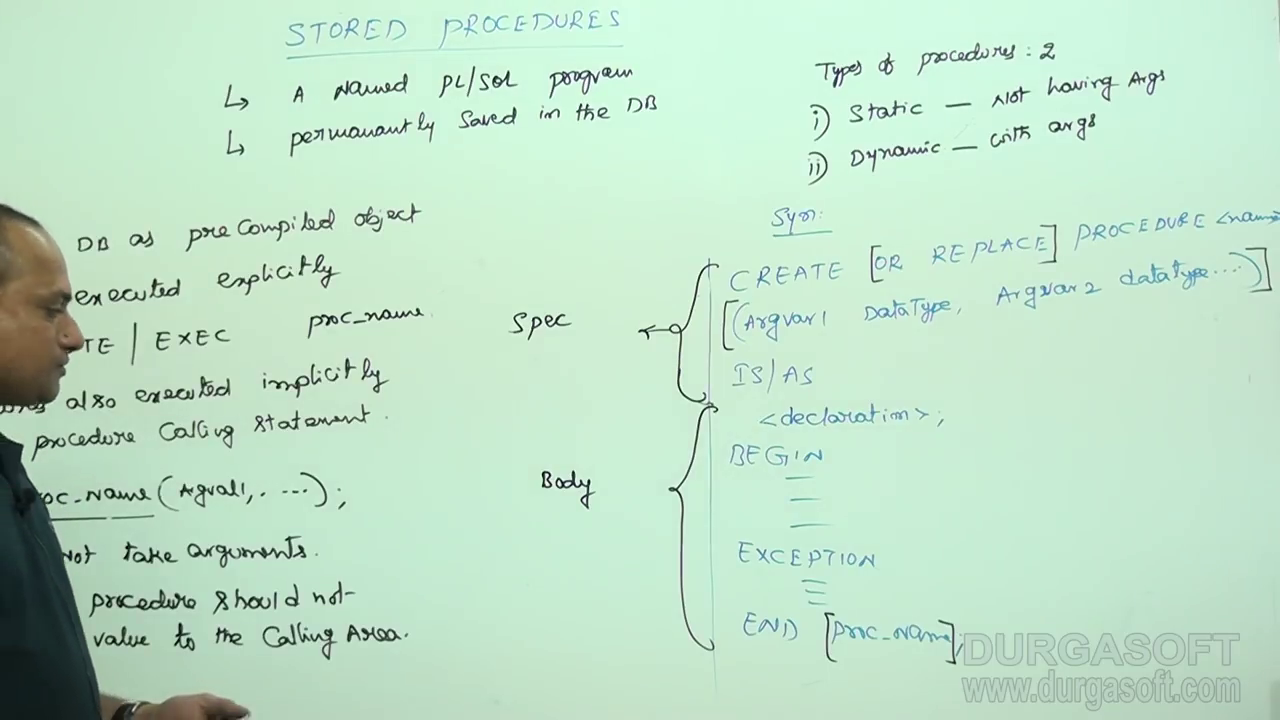 STORED PROCEDURES
↳ A Named PL/SQL program
↳ permanantly Saved in the DB
DB as preCompiled object
executed explicitly
TE | EXEC proc_name.
also executed implicitly
procedure Calling Statement.
oc_Name (Agval1, . ...);
Not take arguments.
procedure should not
value to the Calling Area.
Types of procedures : 2
i) Static — Not having Args
ii) Dynamic — with args
Syn:
CREATE [OR REPLACE] PROCEDURE <name>
[(Argvar1 DataType, Argvar2 datatype....)]
Spec
IS/AS
<declaration>;
BEGIN
Body
EXCEPTION
END [proc_name];
DURGASOFT
www.durgasoft.com